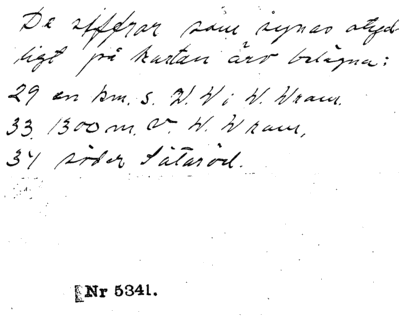 De siffror som synas otyd
ligt på kartan äro belägna:
29 en km. s. V. V i V. Vram.
33 1300 m. V. V. Vram,
34 söder Såtaröd.
Nr 5341.